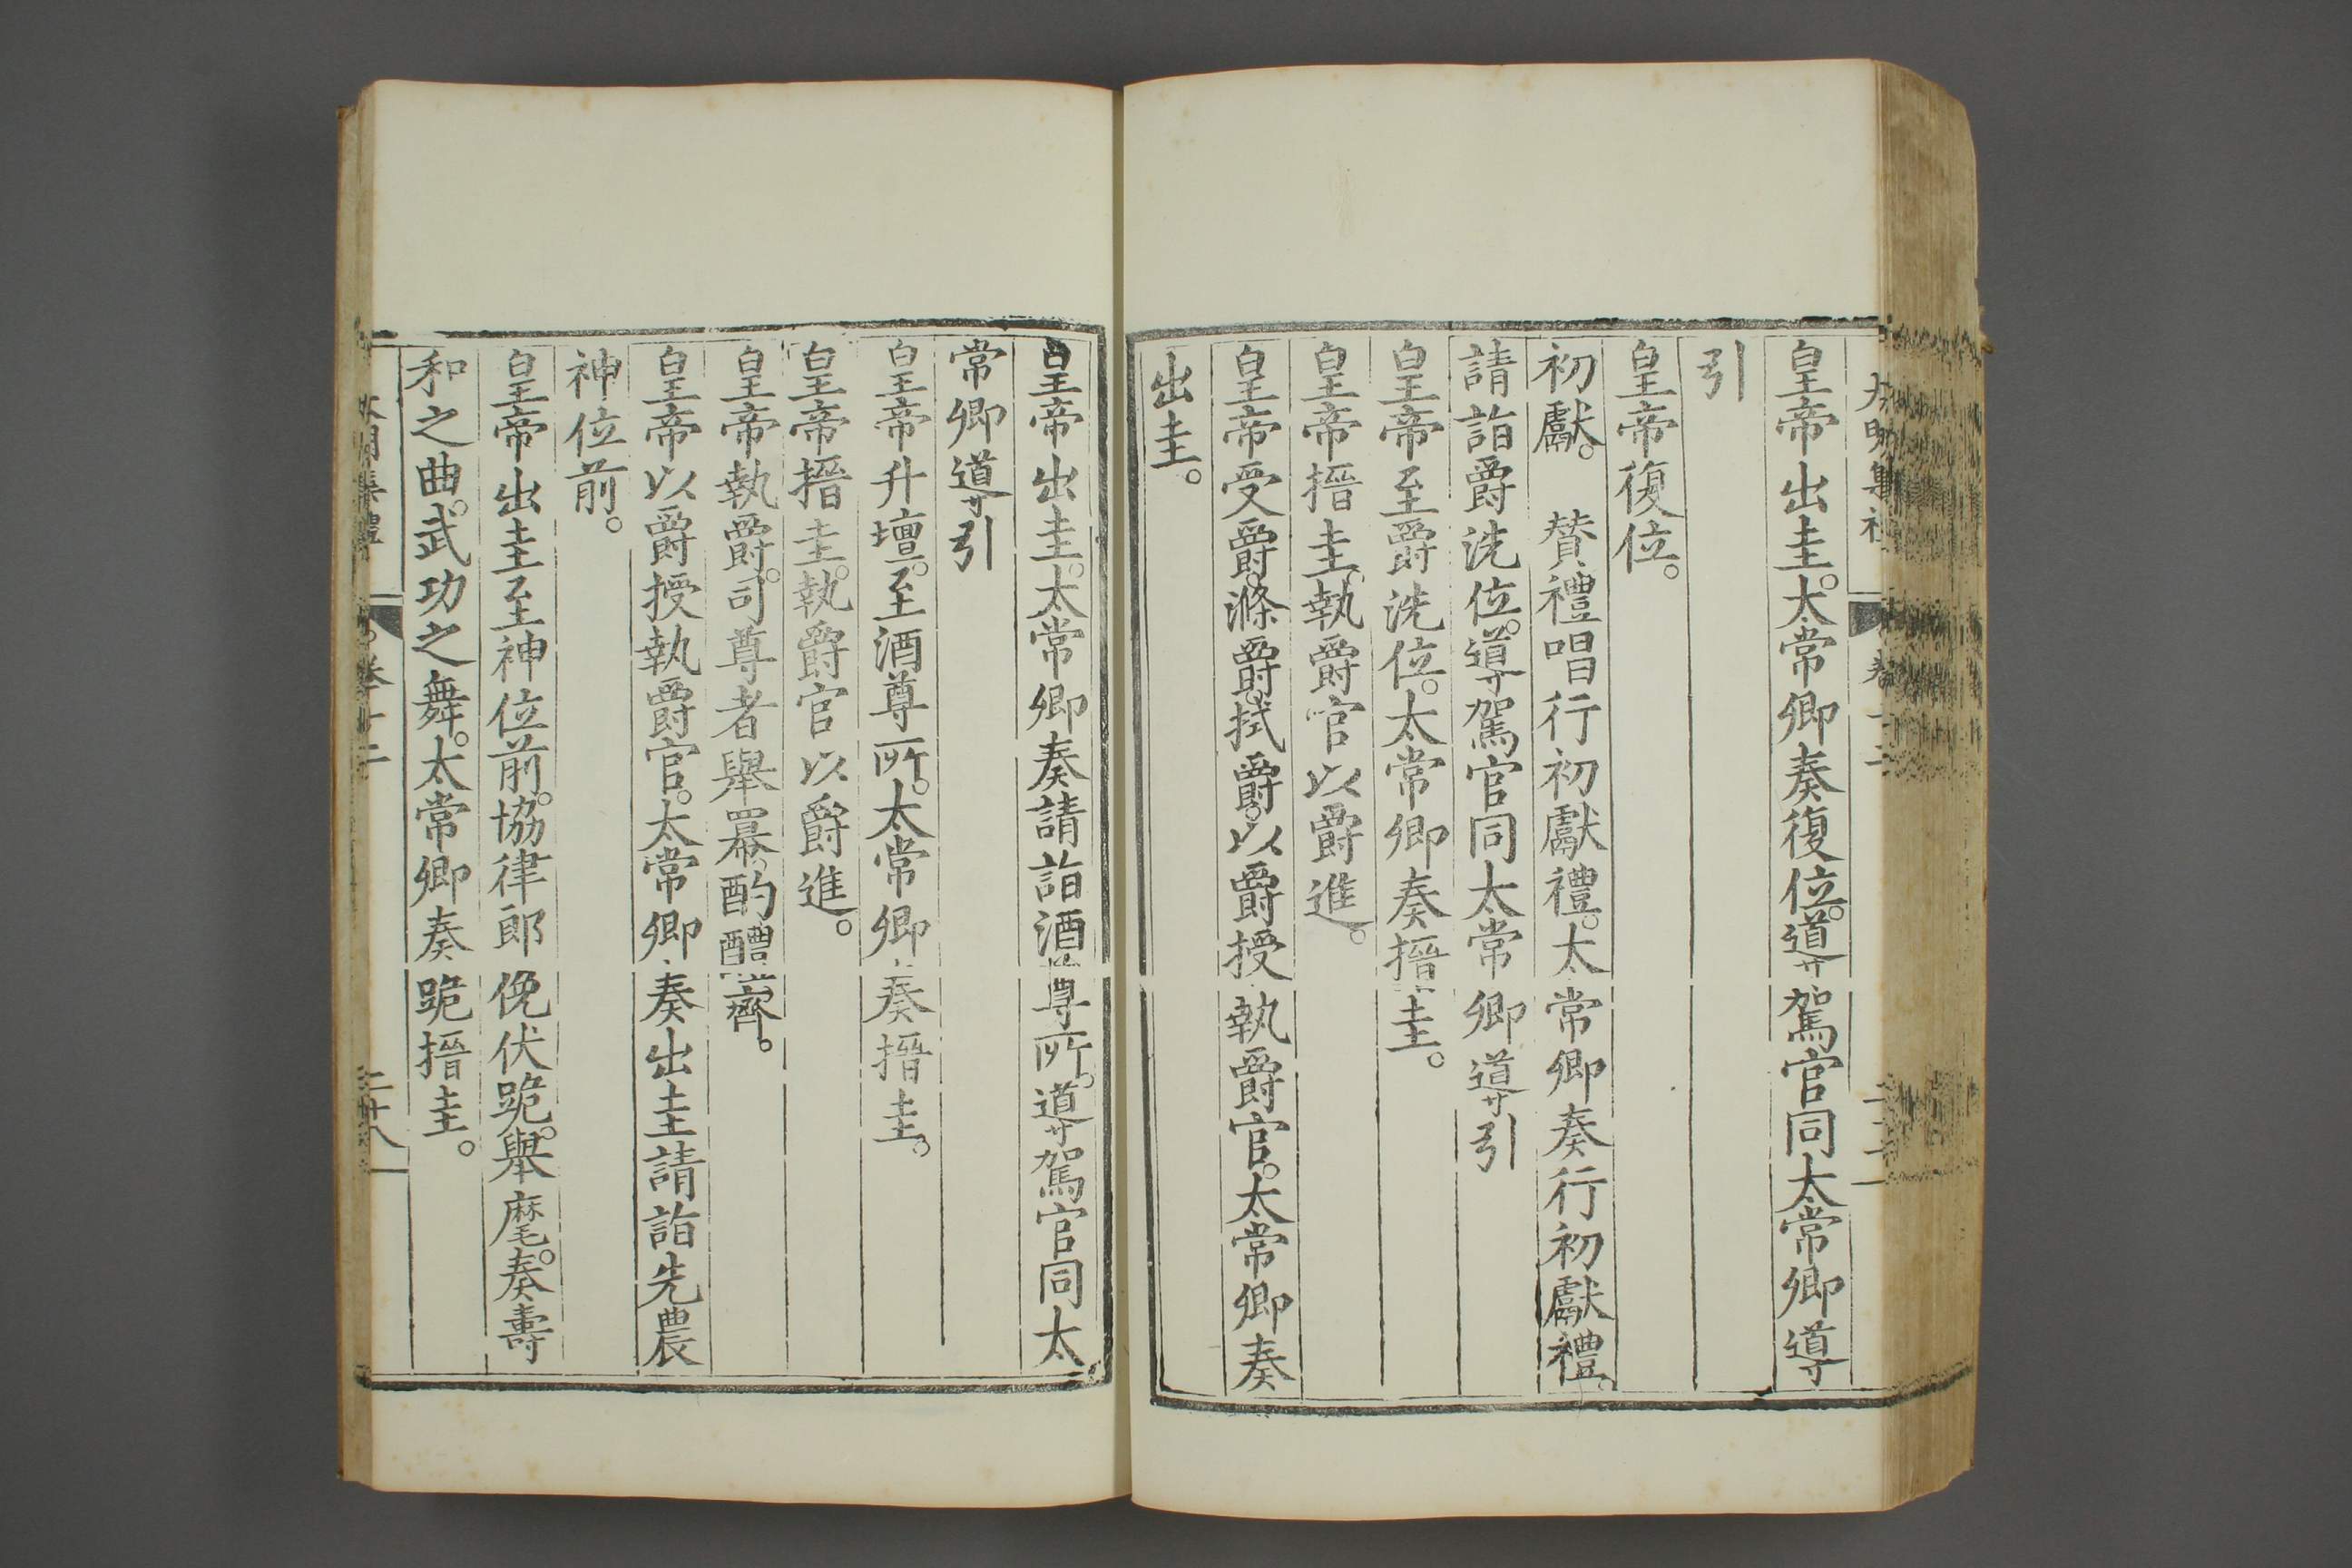 皇帝出圭。太常卿奏復位。導駕官同太常卿導
引
皇帝復位。
初獻。　贊禮唱行初獻禮。太常卿奏行初獻禮。
請詣爵洗位。導駕官同太常卿導引
皇帝至爵洗位。太常卿奏搢圭。
皇帝搢圭。執爵官以爵進。
皇帝受爵。滌爵。拭爵。以爵授執爵官。太常卿奏
出圭。
皇帝出圭。太常卿奏請詣酒尊所。導駕官同太
常卿導引
皇帝升壇。至酒尊所。太常卿奏搢圭。
皇帝搢圭。執爵官以爵進。
皇帝執爵。司尊者舉冪。酌醴齊。
皇帝以爵授執爵官。太常卿奏出圭請詣先農
神位前。
皇帝出圭至神位前。協律郎俛伏跪。舉麾。奏壽
和之曲。武功之舞。太常卿奏跪搢圭。
大明集禮　卷十二　二十八